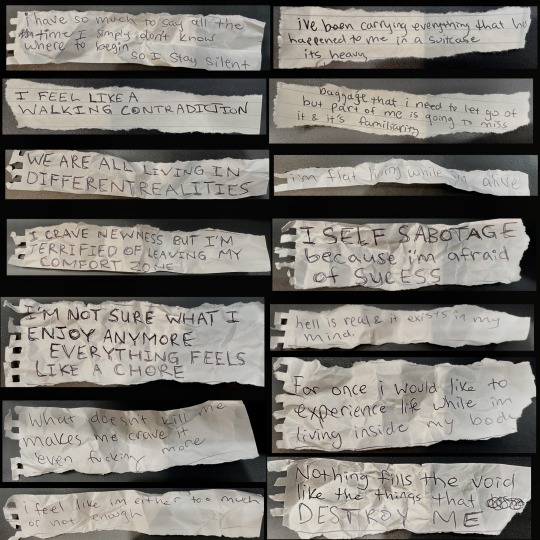 i have so much to say all the
time I simply don't know
where to begin
so I stay silent
I FEEL LIKE A
WALKING CONTRADICTION
WE ARE ALL LIVING IN
DIFFERENT REALITIES
I CRAVE NEWNESS BUT I'M
TERRIFIED OF LEAVING MY
COMFORT ZONE
I'M NOT SURE WHAT I
ENJOY ANYMORE
EVERYTHING FEELS
LIKE A CHORE
What doesnt kill me
makes me crave it
even fucking more
i feel like im either too much
or not enough
i've been carrying everything that
happened to me in a suitcase
its heavy
baggage that i need to let go of
but part of me is going to miss
it & it's familiarity
i'm flat living while alive
I SELF SABOTAGE
because i'm afraid
of SUCESS
hell is real & it exists in my
mind.
For once i would like to
experience life while im
living inside my body
Nothing fills the void
like the things that
DESTROY ME